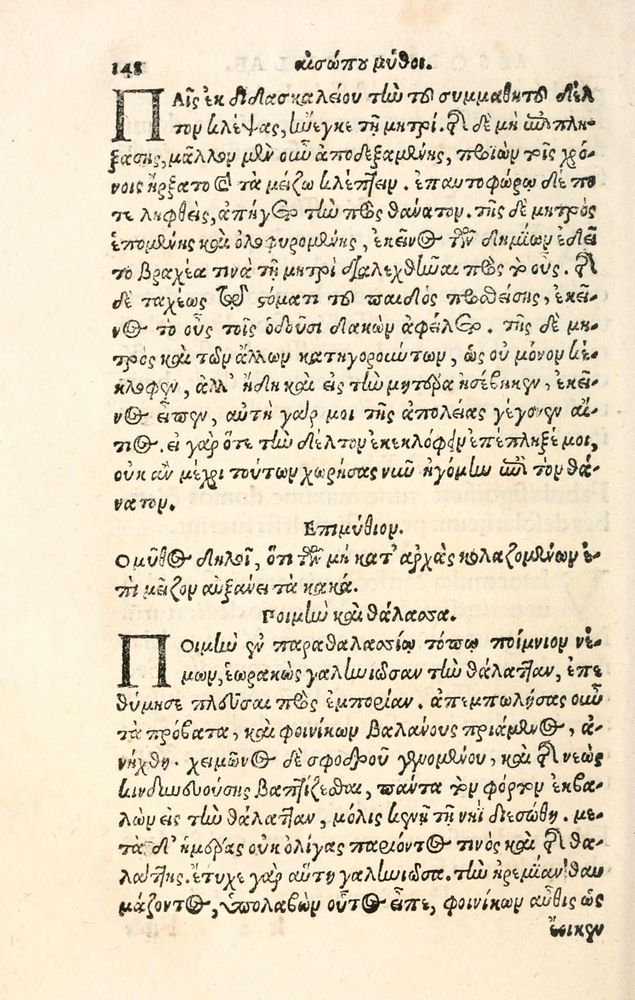 148 αἰσώπου μῦθοι.
ΠΑῖς ἐκ διδασκαλείου τὴν τοῦ συμμαθητοῦ δέλ
τον κλέψας, ἤνεγκε τῇ μητρί. τῆς δὲ μὴ ἐπιπλη-
ξάσης, μᾶλλον μὲν οὖν ἀποδεξαμένης, προϊὼν τοῖς χρό-
νοις ἤρξατο καὶ τὰ μείζω κλέπτειν. ἐπαυτοφώρῳ δέ πο
τε ληφθεὶς, ἀπήγετο τὴν πρὸς θάνατον. τῆς δὲ μητρὸς
ἑπομένης καὶ ὀλοφυρομένης, ἐκεῖνος τῶν δημίων ἐδεῖ
το βραχέα τινὰ τῇ μητρὶ διαλεχθῆναι πρὸς τὸ οὖς. τῆς
δὲ ταχέως τῷ στόματι τοῦ παιδὸς προσθείσης, ἐκεῖ-
νος τὸ οὖς τοῖς ὀδοῦσι δακὼν ἀφείλετο. τῆς δὲ μη-
τρὸς καὶ τῶν ἄλλων κατηγορούντων, ὡς οὐ μόνον κέ-
κλοφεν, ἀλλ' ἤδη καὶ εἰς τὴν μητέρα ἠσέβηκεν, ἐκεῖ-
νος εἶπεν, αὐτὴ γάρ μοι τῆς ἀπολείας γέγονεν αἴ-
τιος. εἰ γὰρ ὅτε τὴν δέλτον ἐκεκλόφειν ἐπέπληξέ μοι,
οὐκ ἂν μέχρι τούτων χωρήσας νῦν ἠγόμην ἐπὶ τὸν θά-
νατον.
Επιμύθιον.
Ο μῦθος δηλοῖ, ὅτι τῶν μὴ κατ' ἀρχὰς κολαζομένων ἐ-
πὶ μεῖζον αὐξάνει τὰ κακά.
Ποιμὴν καὶ θάλασσα.
ΠΟιμὴν ἐν παραθαλασσίῳ τόπῳ ποίμνιον νέ-
μων, ἑωρακὼς γαληνιῶσαν τὴν θάλατταν, ἐπε
θύμησε πλεῦσαι πρὸς ἐμπορίαν. ἀπεμπολήσας οὖν
τὰ πρόβατα, καὶ φοινίκων βαλάνους πριάμενος, ἀ-
νήχθη. χειμῶνος δὲ σφοδροῦ γενομένου, καὶ τῆς νεὼς
κινδυνευούσης βαπτίζεσθαι, πάντα τὸν φόρτον ἐκβα-
λὼν εἰς τὴν θάλατταν, μόλις κενῇ τῇ νηῒ διεσώθη. με-
τὰ δ' ἡμέρας οὐκ ὀλίγας παριόντος τινὸς καὶ τῆς θα-
λάττης. ἔτυχε γὰρ αὕτη γαληνιῶσα. τὴν ἠρεμίαν θαυ
μάζοντος, ὑπολαβὼν οὗτος εἶπε, φοινίκων αὖθις ὡς
ἔοικεν